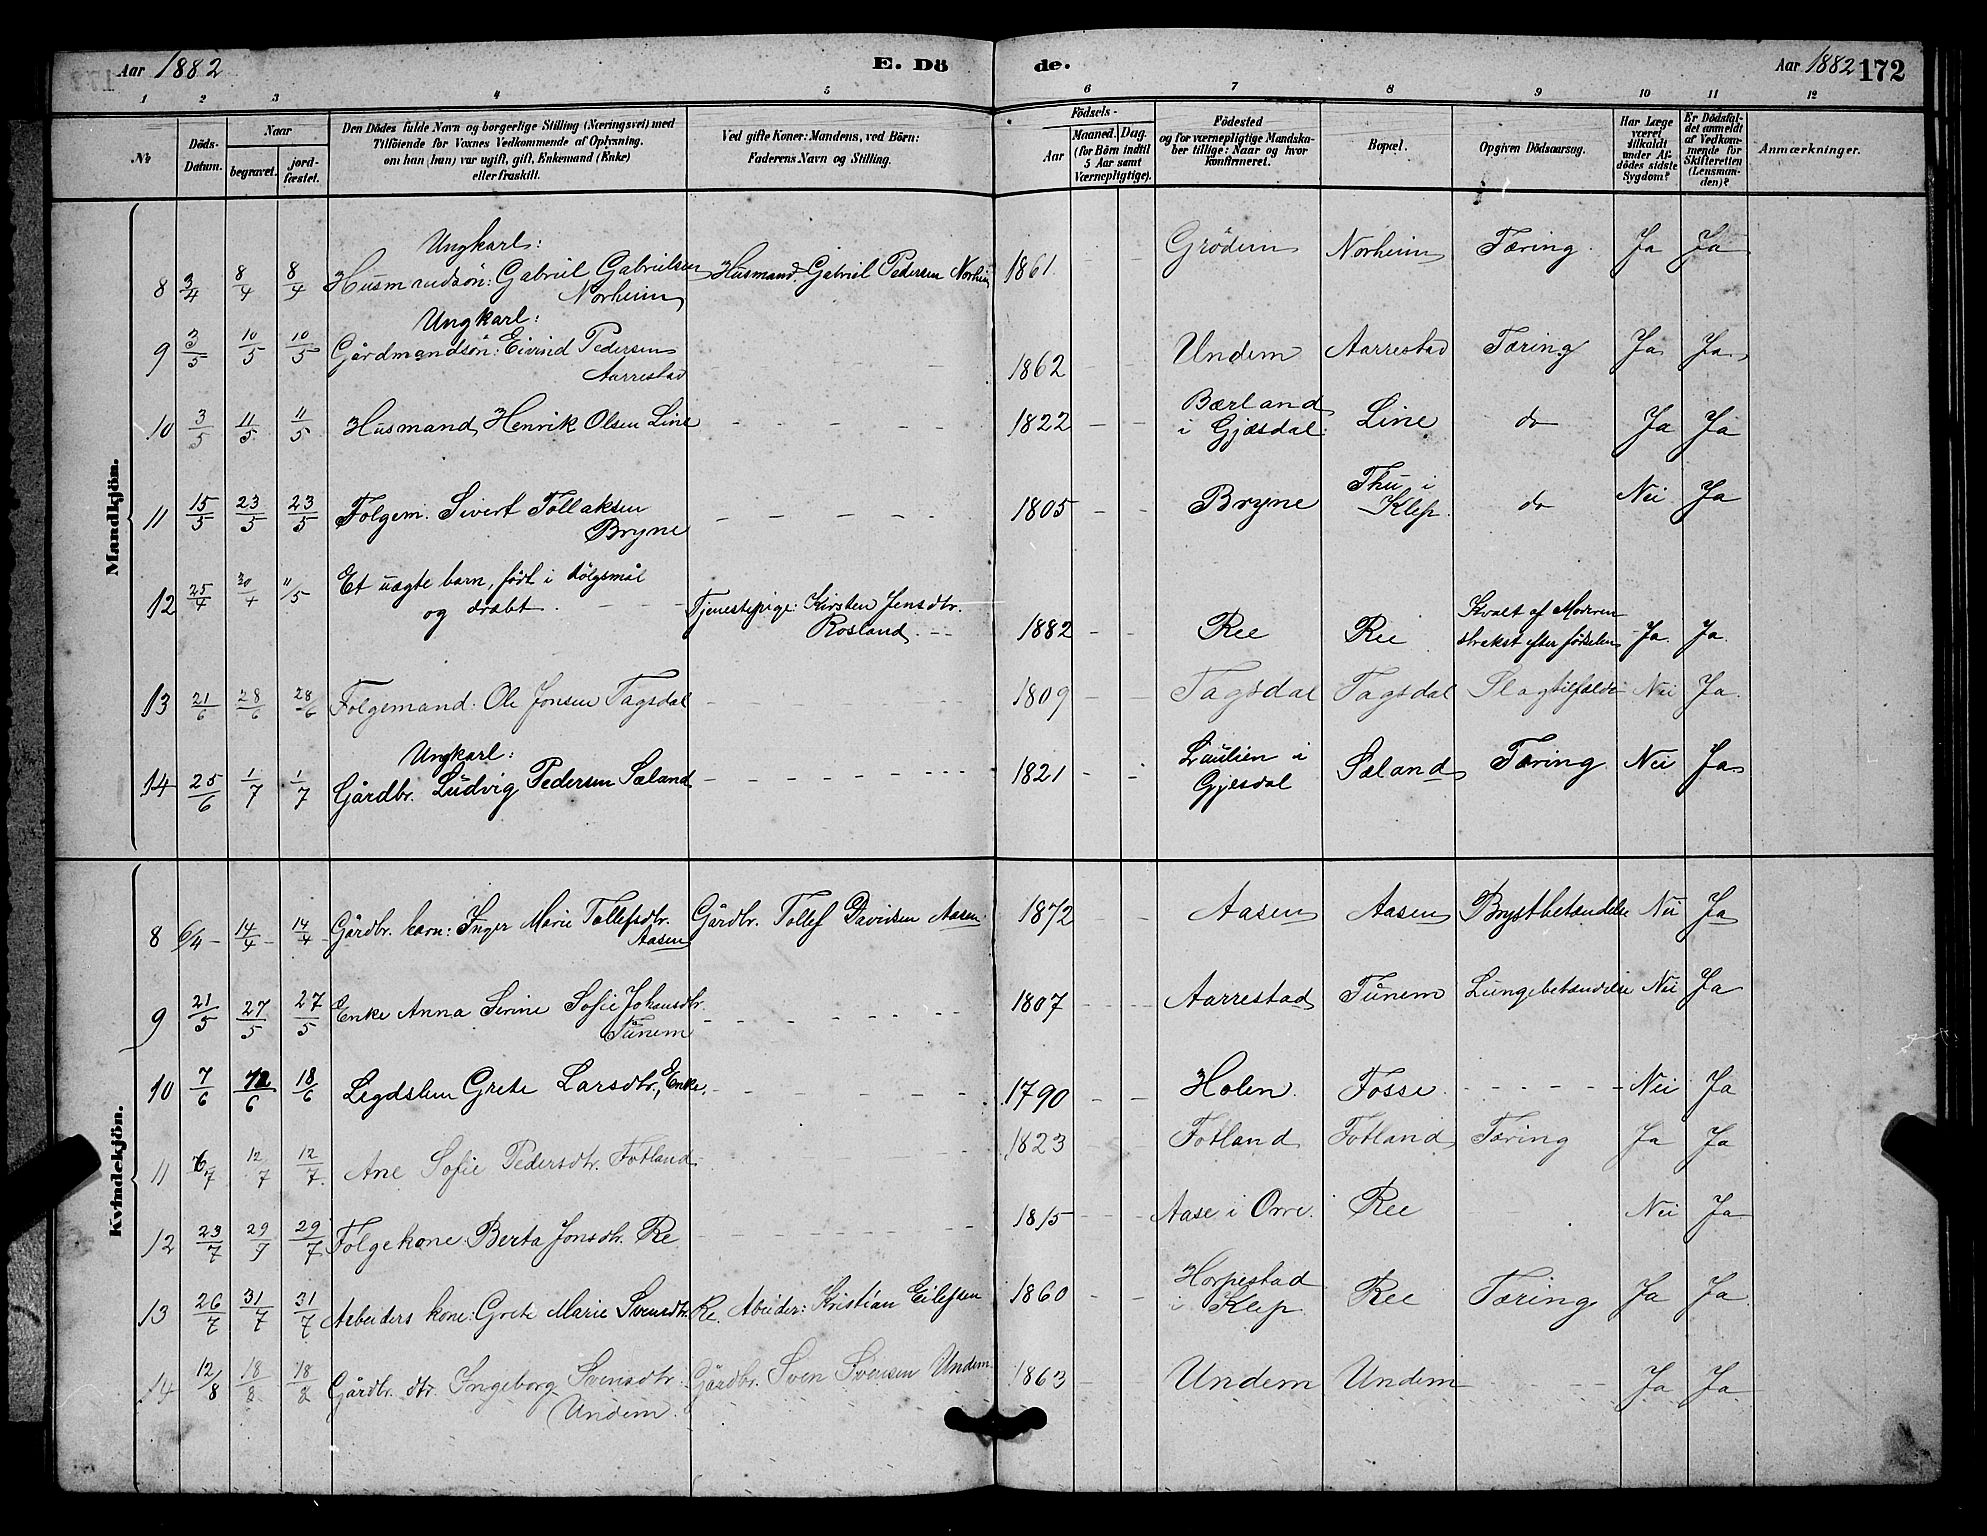 Aar 1882 E. Dö de. Aar 1882 172
1 2 3 4 5 6 7 8 9 10 11 12
No
Döds-Datum.
Naar
begravet.
jordfæstet.
Den Dödes fulde Navn og borgerlige Stilling (Næringsvei) med
Tilföiende for Voxnes Vedkommende af Oplysning,
om han (hun) var ugift, gift, Enkemand (Enke)
eller fraskilt.
Ved gifte Koner: Mandens, ved Börn:
Faderens Navn og Stilling.
Födsels-
Aar
Maaned. Dag.
(for Börn indtil
5 Aar samt
Værnepligtige).
Födested
og for værnepligtige Mandska-
ber tillige: Naar og hvor
konfirmeret.
Bopæl.
Opgiven Dödsaarsag.
Har Læge
været
tilkaldt
under Af-
dödes sidste
Sygdom?
Er Dödsfal-
det anmeldt
af Vedkom-
mende for
Skifteretten
(Lensman-
den)?
Anmærkninger.
Mandkjön.
Ungkarl:
8 3/4 8/4 8/4 Husmandsön: Gabriel Gabrielsen Husmand. Gabriel Pedersen Norheim 1861 Grödem Norheim Tæring Ja Ja
Norheim
Ungkarl:
9 3/5 10/5 10/5 Gårdmandsön: Eivind Pedersen 1862 Undem Aarrestad Tæring Ja Ja
Aarrestad
10 3/5 11/5 11/5 Husmand Henrik Olsen Line 1822 Bærland i Gjæsdal Line do Ja Ja
11 15/5 23/5 23/5 Folgem. Sivert Tollaksen 1805 Bryne Thu i Klep do Nei Ja
Bryne
12 25/4 30/4 11/5 Et uægte barn, født i dölgsmål
og dræbt. Tjenestepige: Kirsten Jensdtr.
Rosland. 1882 Ree Ree Kvalt af Moderen
strakst efter fødselen Ja Ja
13 21/6 28/6 28/6 Folgemand: Ole Jonsen Tagsdal 1809 Tagsdal Tagsdal Slagtilfælde Nei Ja
Ungkarl:
14 25/6 1/7 1/7 Gårdbr. Ludvig Pedersen Sæland 1821 Laulien i Gjesdal Sæland Tæring Nei Ja
Kvindekjön.
8 6/4 14/4 14/4 Gårdbr. barn: Inger Marie Tollefsdtr. Gårdbr. Tollef Davidsen Aasen 1872 Aasen Aasen Brystbetændelse Nei Ja
Aasen
9 21/5 27/5 27/5 Enke Anna Serine Sofie Johansdtr. 1807 Aarrestad Tunem Lungebetændelse Nei Ja
Tunem
10 7/6 /6 18/6 Legdslem Grete Larsdtr., Enke. 1790 Holen Fosse Nei Ja
11 6/7 12/7 12/7 Ane Sofie Pedersdtr. Fotland 1823 Fotland Fotland Tæring Ja Ja
12 23/7 29/7 29/7 Folgekone Berta Jonsdtr. Re 1815 Aase i Orre. Ree Nei Ja
13 26/7 31/7 31/7 Arbeiders kone: Grete Marie Svensdtr. Re. Abeider: Kristian Eilefsen 1860 Horpestad i Klep Ree Tæring Ja Ja
14 12/8 18/8 18/8 Gårdbr. dtr. Ingeborg Svensdtr. Gårdbr. Sven Svensen Undem 1863 Undem Undem Ja Ja
Undem.